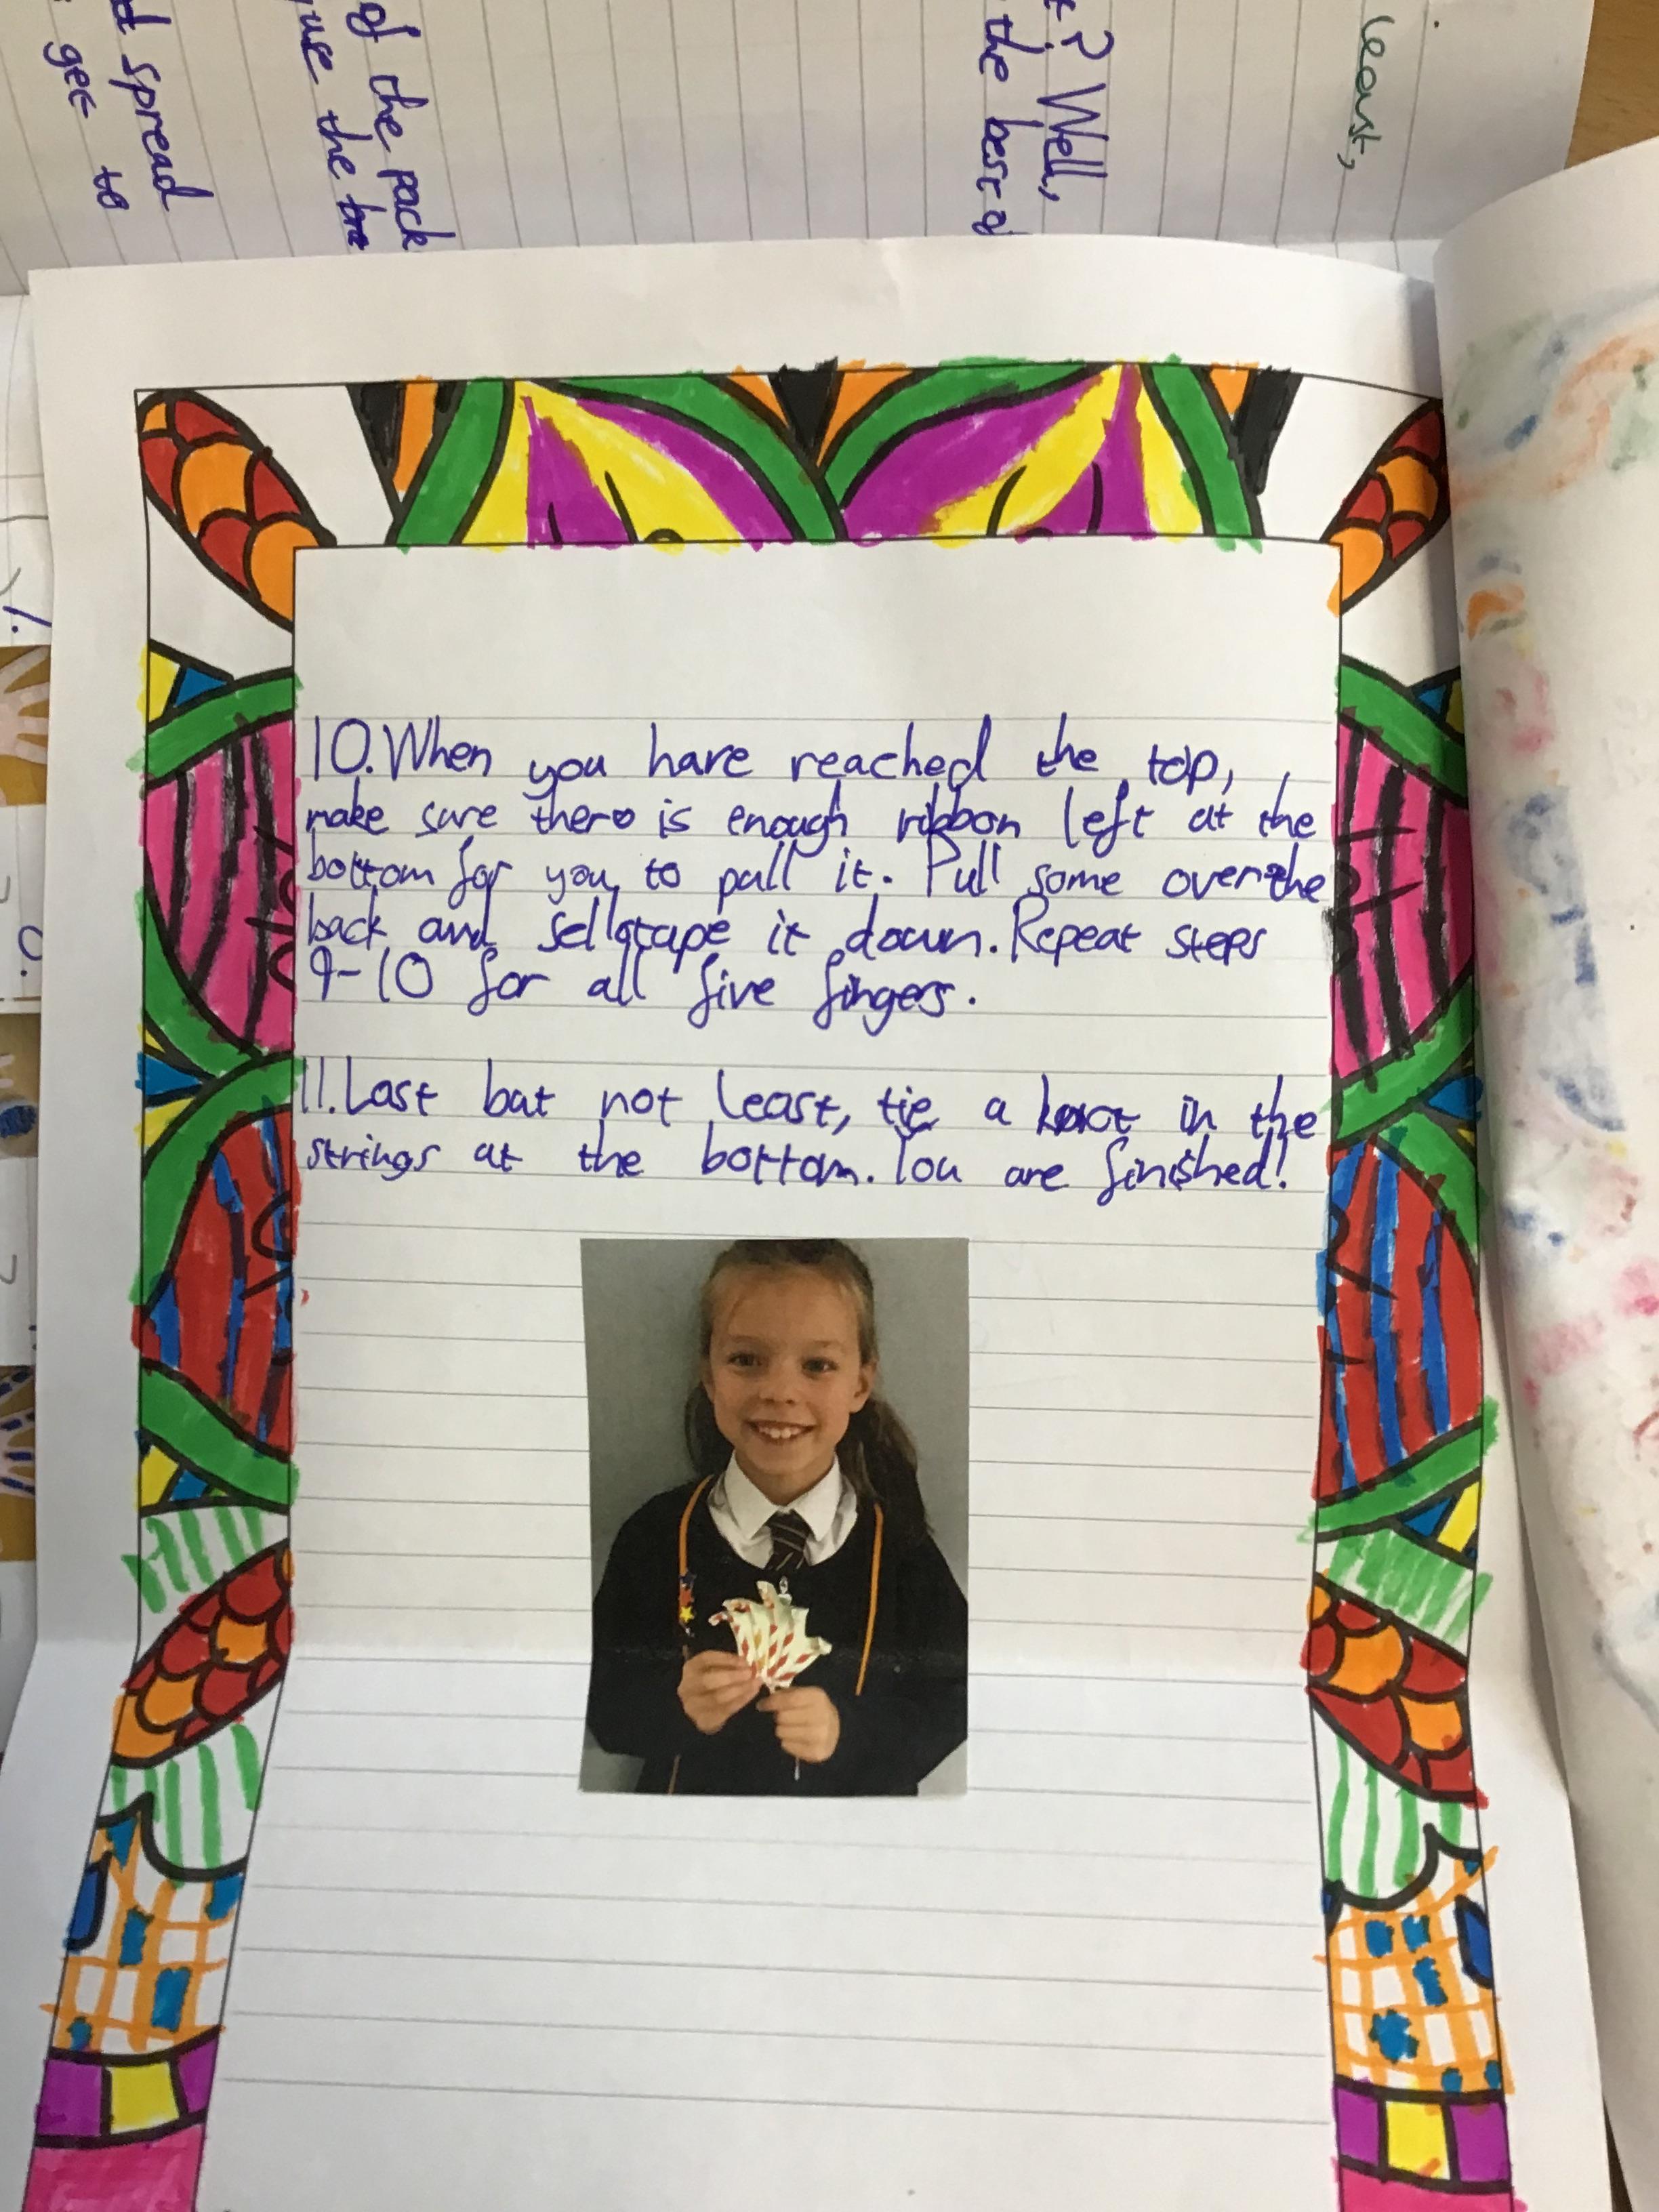 least,
t? Well,
the best of
of the pack
gue the
d spread
get to
10. When you have reached the top,
make sure there is enough ribbon left at the
bottom for you to pull it. Pull some over the
back and sellotape it down. Repeat steps
9-10 for all five fingers.
11. Last but not least, tie a knot in the
strings at the bottom. You are finished!